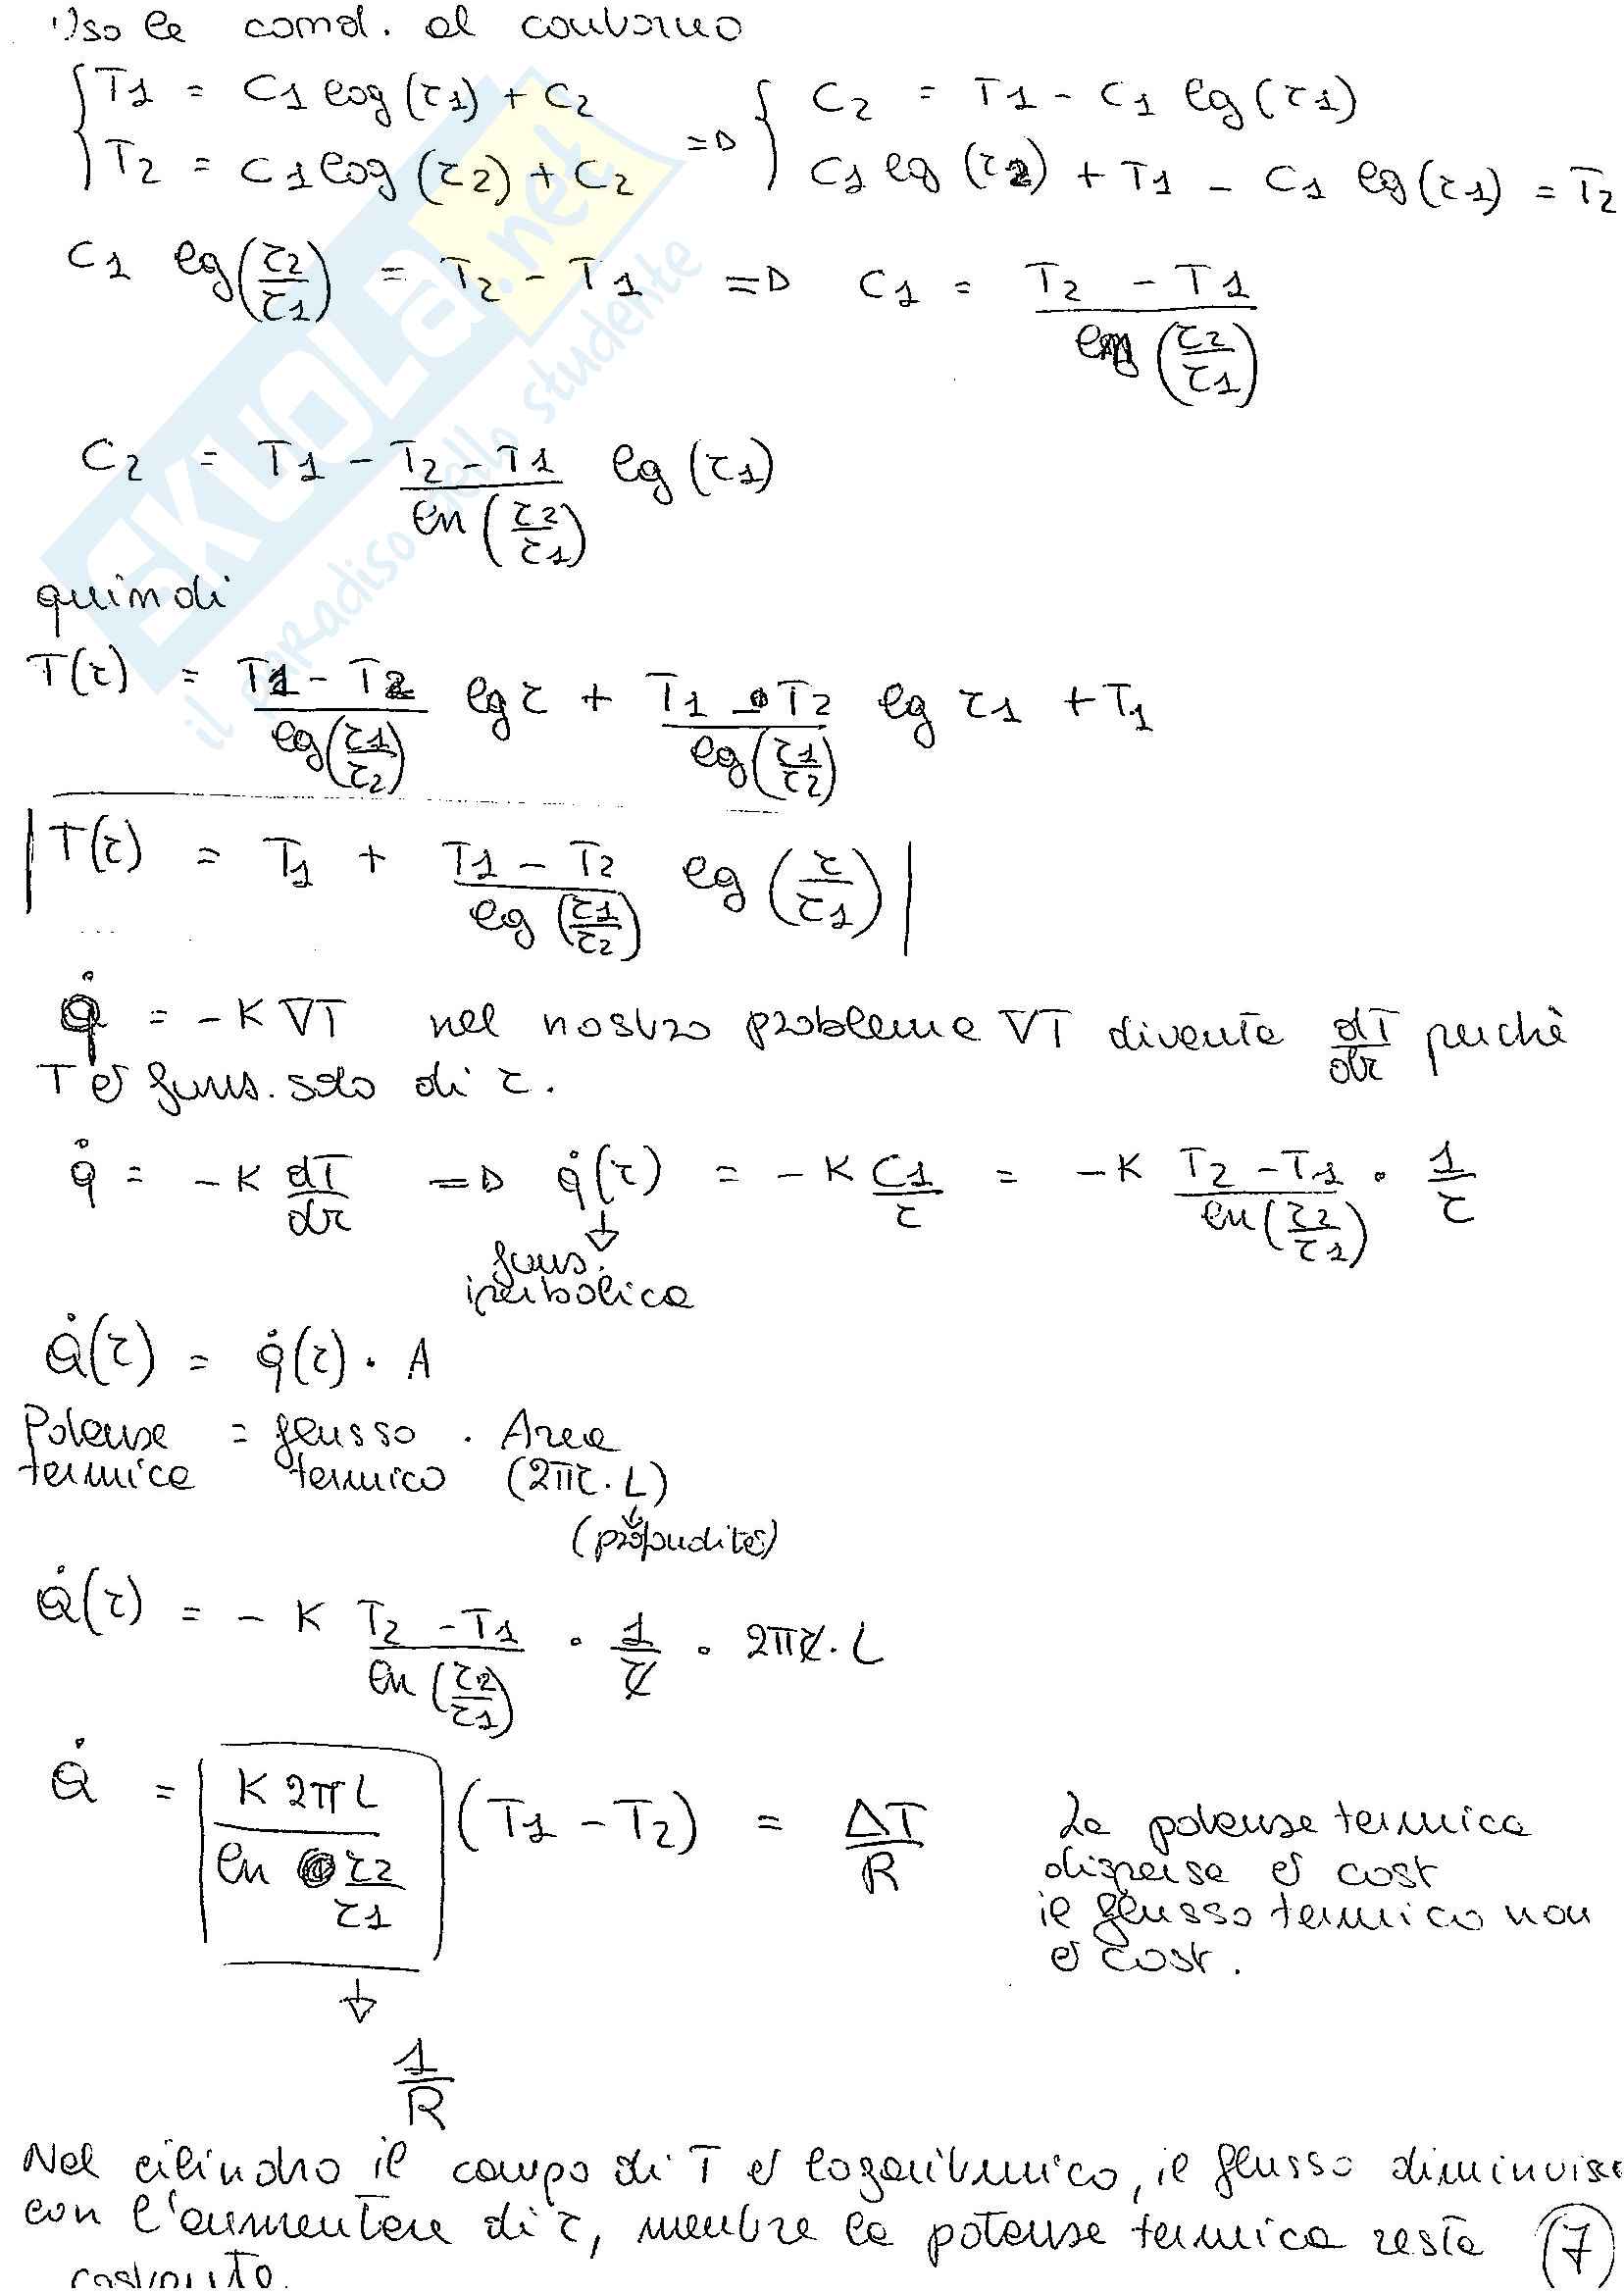 Uso le cond. al contorno
{ T1 = C1 log(r1) + C2 => { C2 = T1 - C1 lg(r1)
T2 = C1 log(r2) + C2 C1 lg(r2) + T1 - C1 lg(r1) = T2
C1 lg(r2/r1) = T2 - T1 => C1 = (T2 - T1)/ln(r2/r1)
C2 = T1 - (T2 - T1)/ln(r2/r1) lg(r1)
quindi
T(r) = (T1 - T2)/lg(r1/r2) lg r + (T1 - T2)/lg(r1/r2) lg r1 + T1
T(r) = T1 + (T1 - T2)/lg(r1/r2) lg(r/r1)
q̇ = -K ∇T nel nostro problema ∇T diventa dT/dr perchè
T è funz. solo di r.
q̇ = -K dT/dr => q̇(r) = -K C1/r = -K (T2 - T1)/ln(r2/r1) · 1/r
↓
funz.
iperbolica
Q̇(r) = q̇(r) · A
Potenza = flusso · Area
termica termico (2πr · L)
↓
(profondità)
Q̇(r) = - K (T2 - T1)/ln(r2/r1) · 1/r · 2πr · L
Q̇ = K 2π L / ln r2/r1 (T1 - T2) = ΔT/R
La potenza termica
dispersa è cost
il flusso termico non
è cost.
↓
1/R
Nel cilindro il campo di T è logaritmico, il flusso diminuisce
con l'aumentare di r, mentre la potenza termica resta
costante.
7
SKUOLA.net
il paradiso dello studente